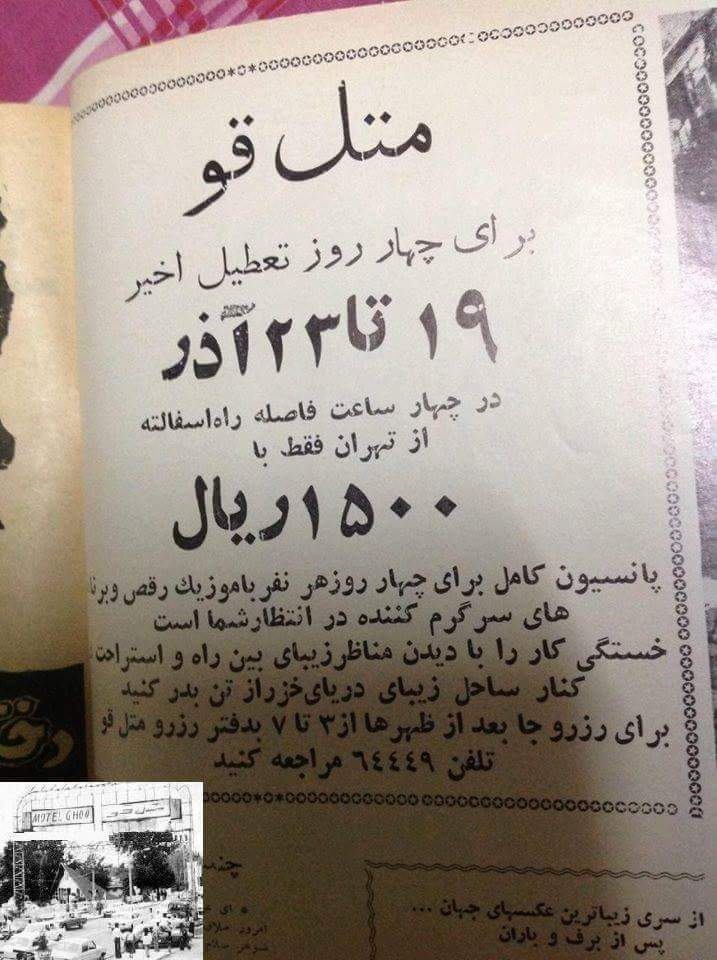 متل قو
برای چهار روز تعطیل اخیر
۱۹ تا ۲۳ آذر
در چهار ساعت فاصله راه اسفالته
از تهران فقط با
۱۵۰۰ ریال
پانسیون کامل برای چهار روز هر نفر با موزیك رقص و برنا
های سرگرم کننده در انتظار شما است
خستگی کار را با دیدن مناظر زیبای بین راه و استراحت
کنار ساحل زیبای دریای خزر از تن بدر کنید
برای رزرو جا بعد از ظهرها از ۳ تا ۷ بدفتر رزرو متل قو
تلفن ۶۴۴۴۹ مراجعه کنید
MOTEL GHOO
متل قو
از سری زیباترین عکسهای جهان ...
پس از برف و باران